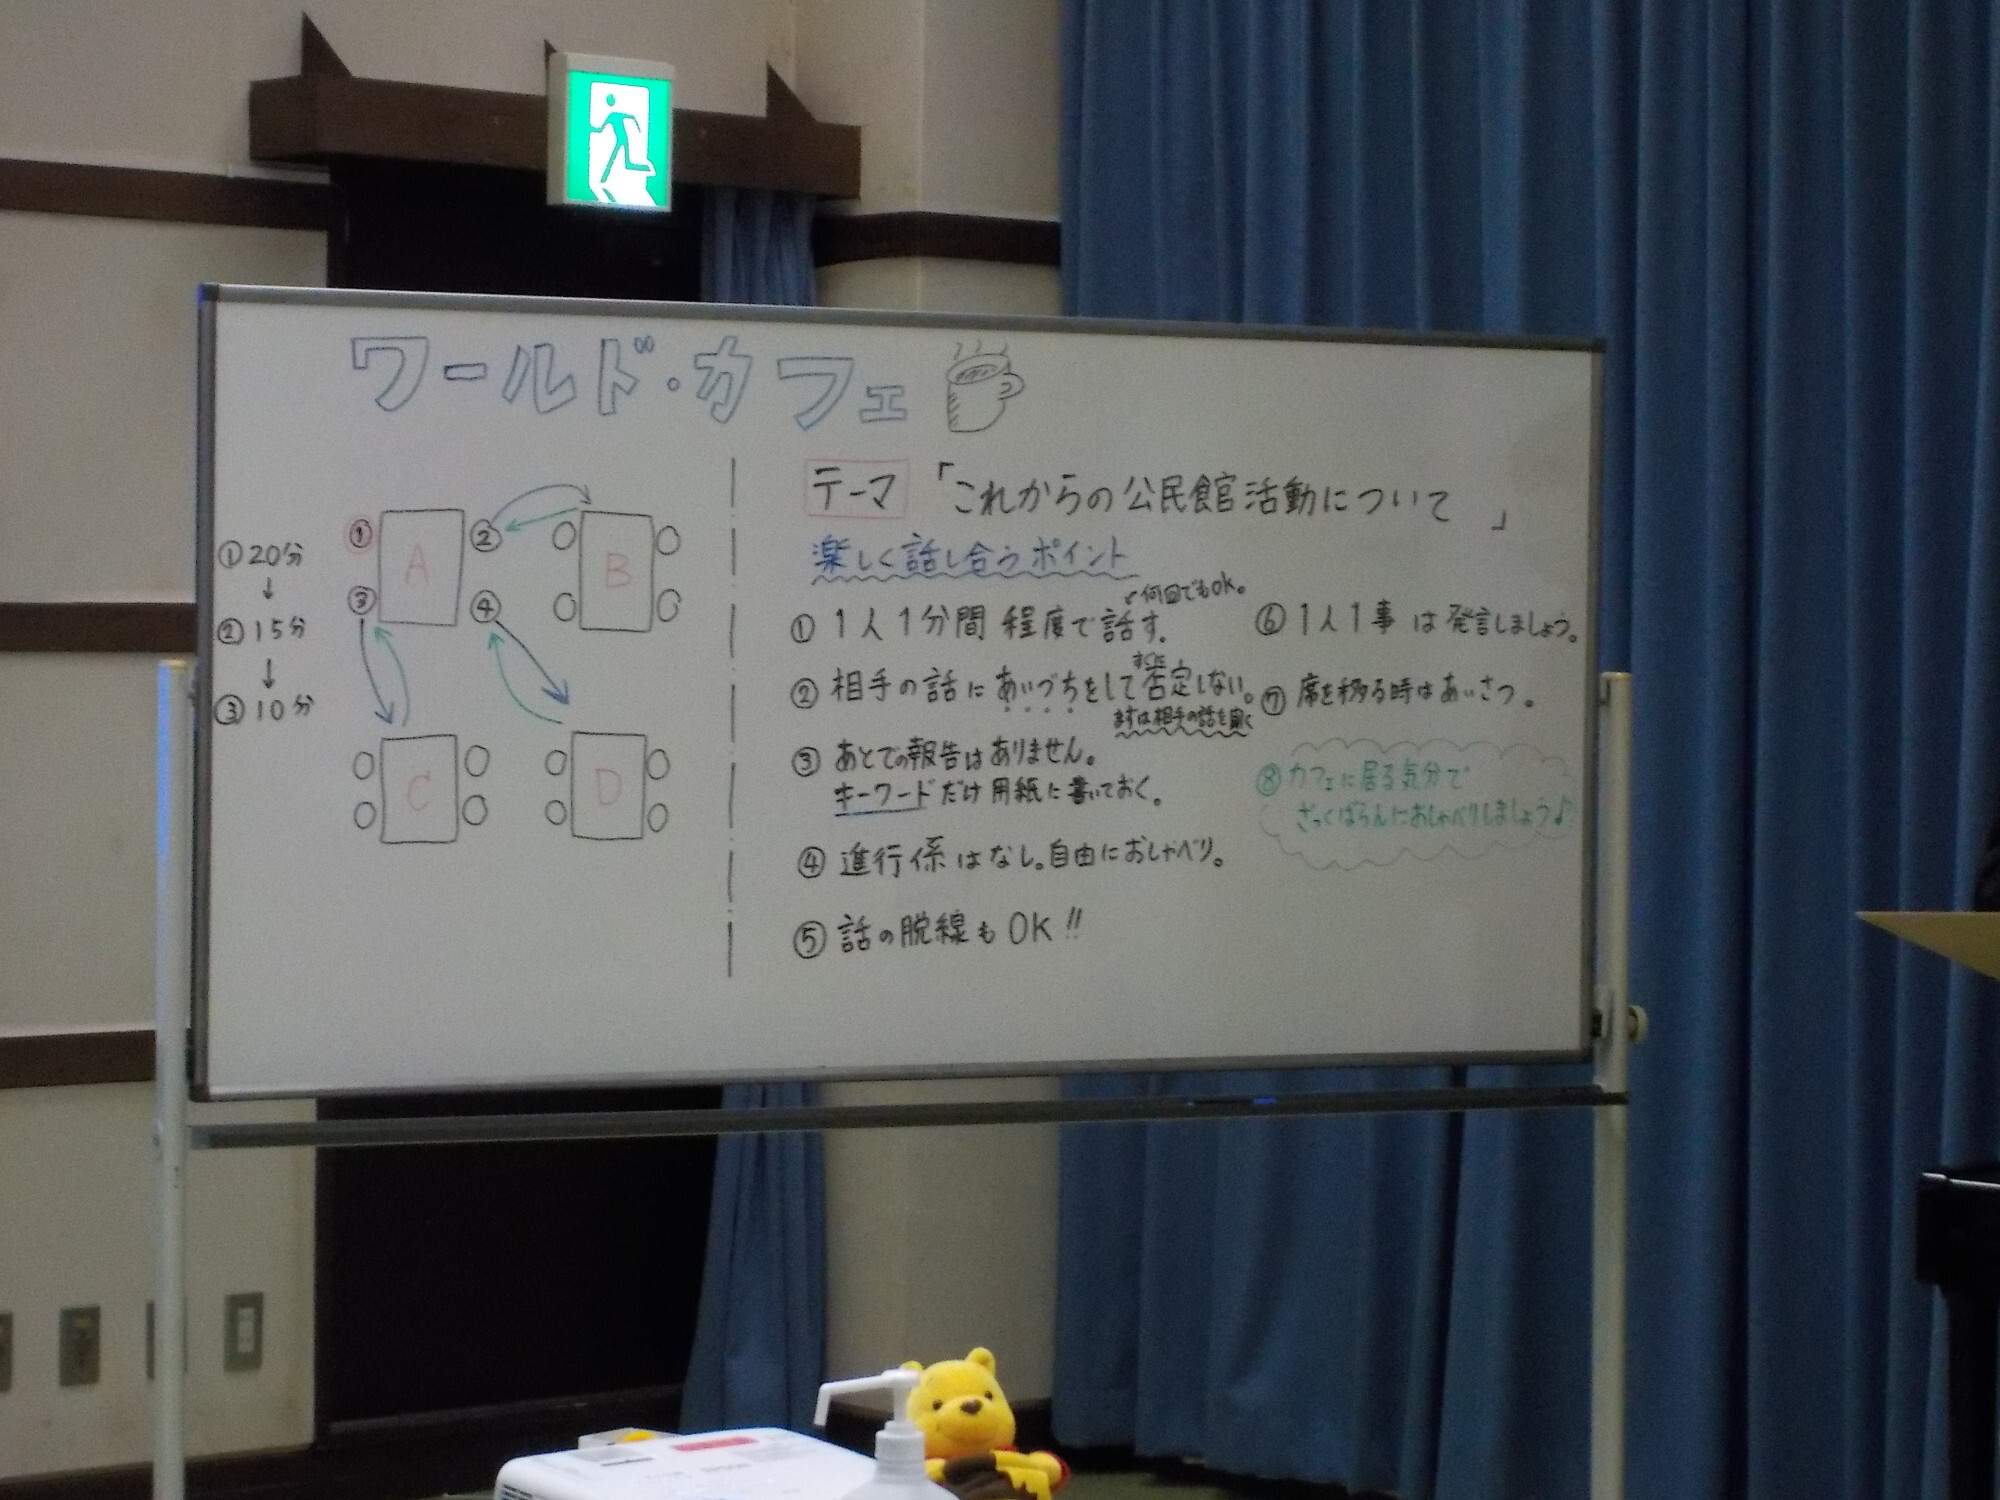 ワールド・カフェ
①20分
↓
②15分
↓
③10分
① A ②
③ ④
B
C
D
テーマ 「これからの公民館活動について 」
楽しく話し合うポイント
何回でもOK。
①1人1分間 程度で話す。
②相手の話に あいづちをして否定しない。
すぐに
まずは相手の話を聞く
③あとでの報告はありません。
キーワードだけ用紙に書いておく。
④進行係はなし。自由におしゃべり。
⑤話の脱線もOK!!
⑥1人1事は発言しましょう。
⑦席を移る時はあいさつ。
⑧カフェに居る気分で
ざっくばらんにおしゃべりしましょう♪